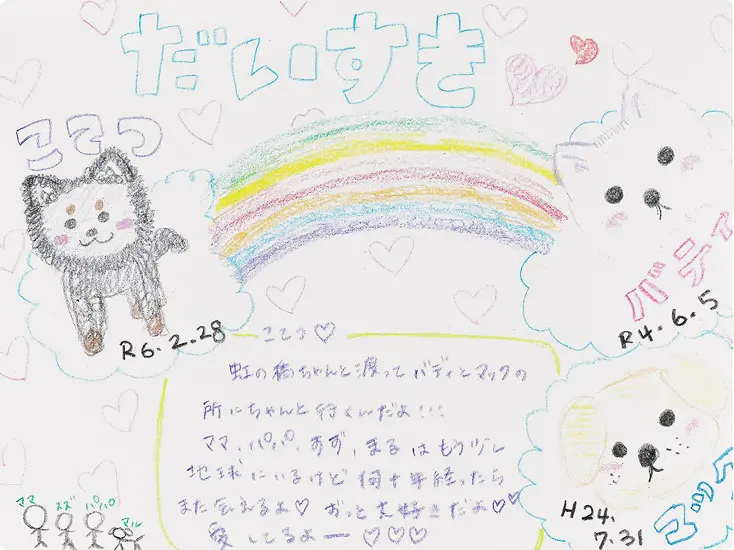 だいすき
こてつ
R6.2.28
バディ
R4.6.5
こてつ♡
虹の橋ちゃんと渡ってバディとマックの
所にちゃんと行くんだよ!!!
ママ、パパ、すず、まるはもう少し
地球にいるけど何十年経ったら
また会えるよ♡ずっと大好きだよ♡♡
愛してるよー♡♡♡
マック
H24.
7.31
ママ
スズ
パパ
マル